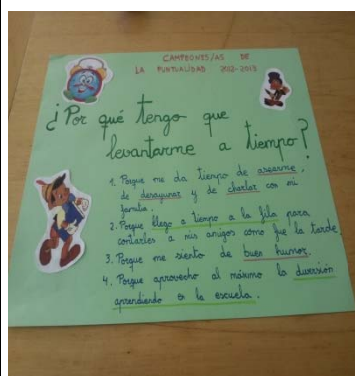 CAMPEONES/AS DE
LA PUNTUALIDAD 2012-2013
¿Por qué tengo que
levantarme a tiempo?
1. Porque me da tiempo de asearme,
de desayunar y de charlar con mi
familia.
2. Porque llego a tiempo a la fila para
contarles a mis amigos como fue la tarde.
3. Porque me siento de buen humor.
4. Porque aprovecho al máximo la diversión
aprendiendo en la escuela.